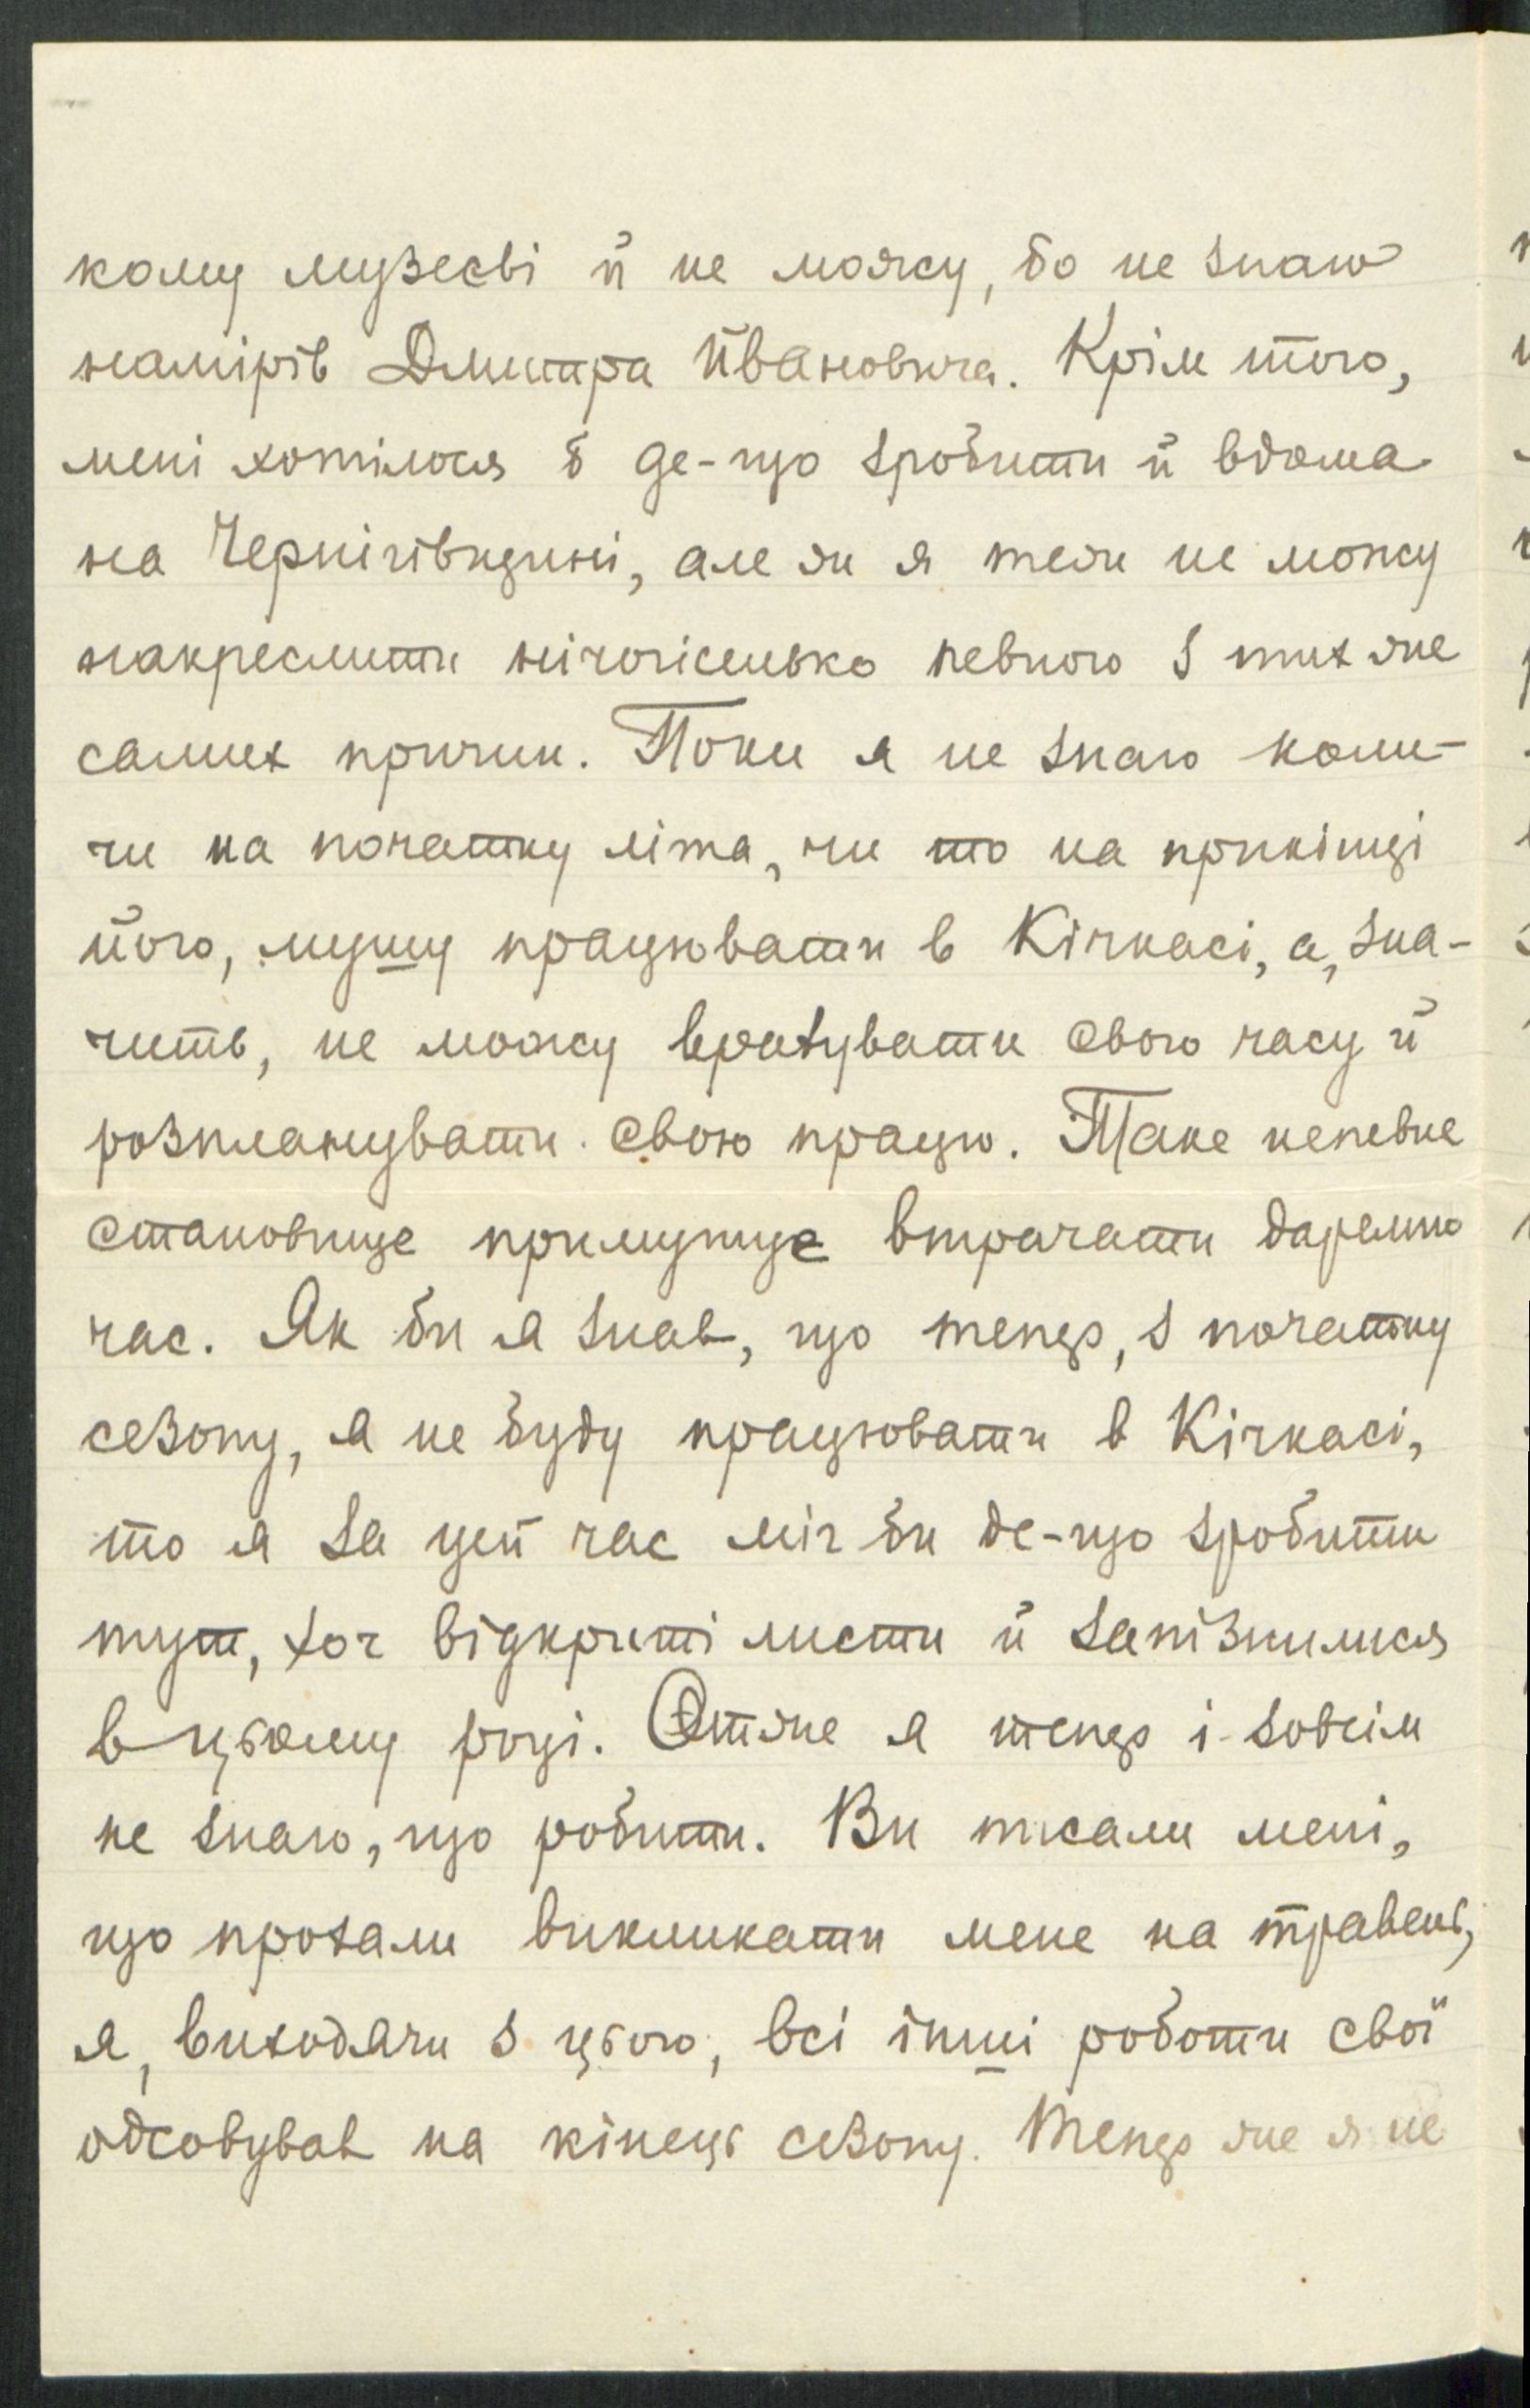 кому музеєві й не можу, бо не знаю
намірів Дмитра Йвановича. Крім того,
мені хотілося б де-що зробити й вдома
на Чернігівщині, але й я теж не можу
накреслити нічогісенько певного з тих же
самих причин. Поки я не знаю коли –
чи на початку літа, чи то на прикінці
його, мушу працювати в Кічкасі, а, зна-
чить, не можу врахувати свого часу й
розпланувати свою працю. Таке непевне
становище примушує втрачати даремно
час. Як би я знав, що тепер, з початку
сезону, я не буду працювати в Кічкасі,
то я за цей час міг би де-що зробити
тут, хоч відкриті листи й запізнилися
в цьому році. Отже я тепер і зовсім
не знаю, що робити. Ви писали мені,
що прохали викликати мене на травень,
я, виходячи з цього, всі інші роботи свої
одсовував на кінець сезону. Тепер же я не